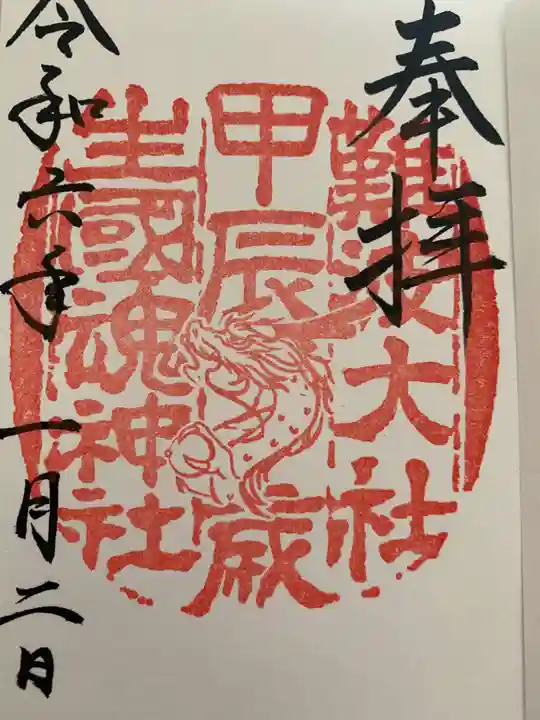 奉拝
難波大社
甲辰歳
生國魂神社
令和六年 一月二日